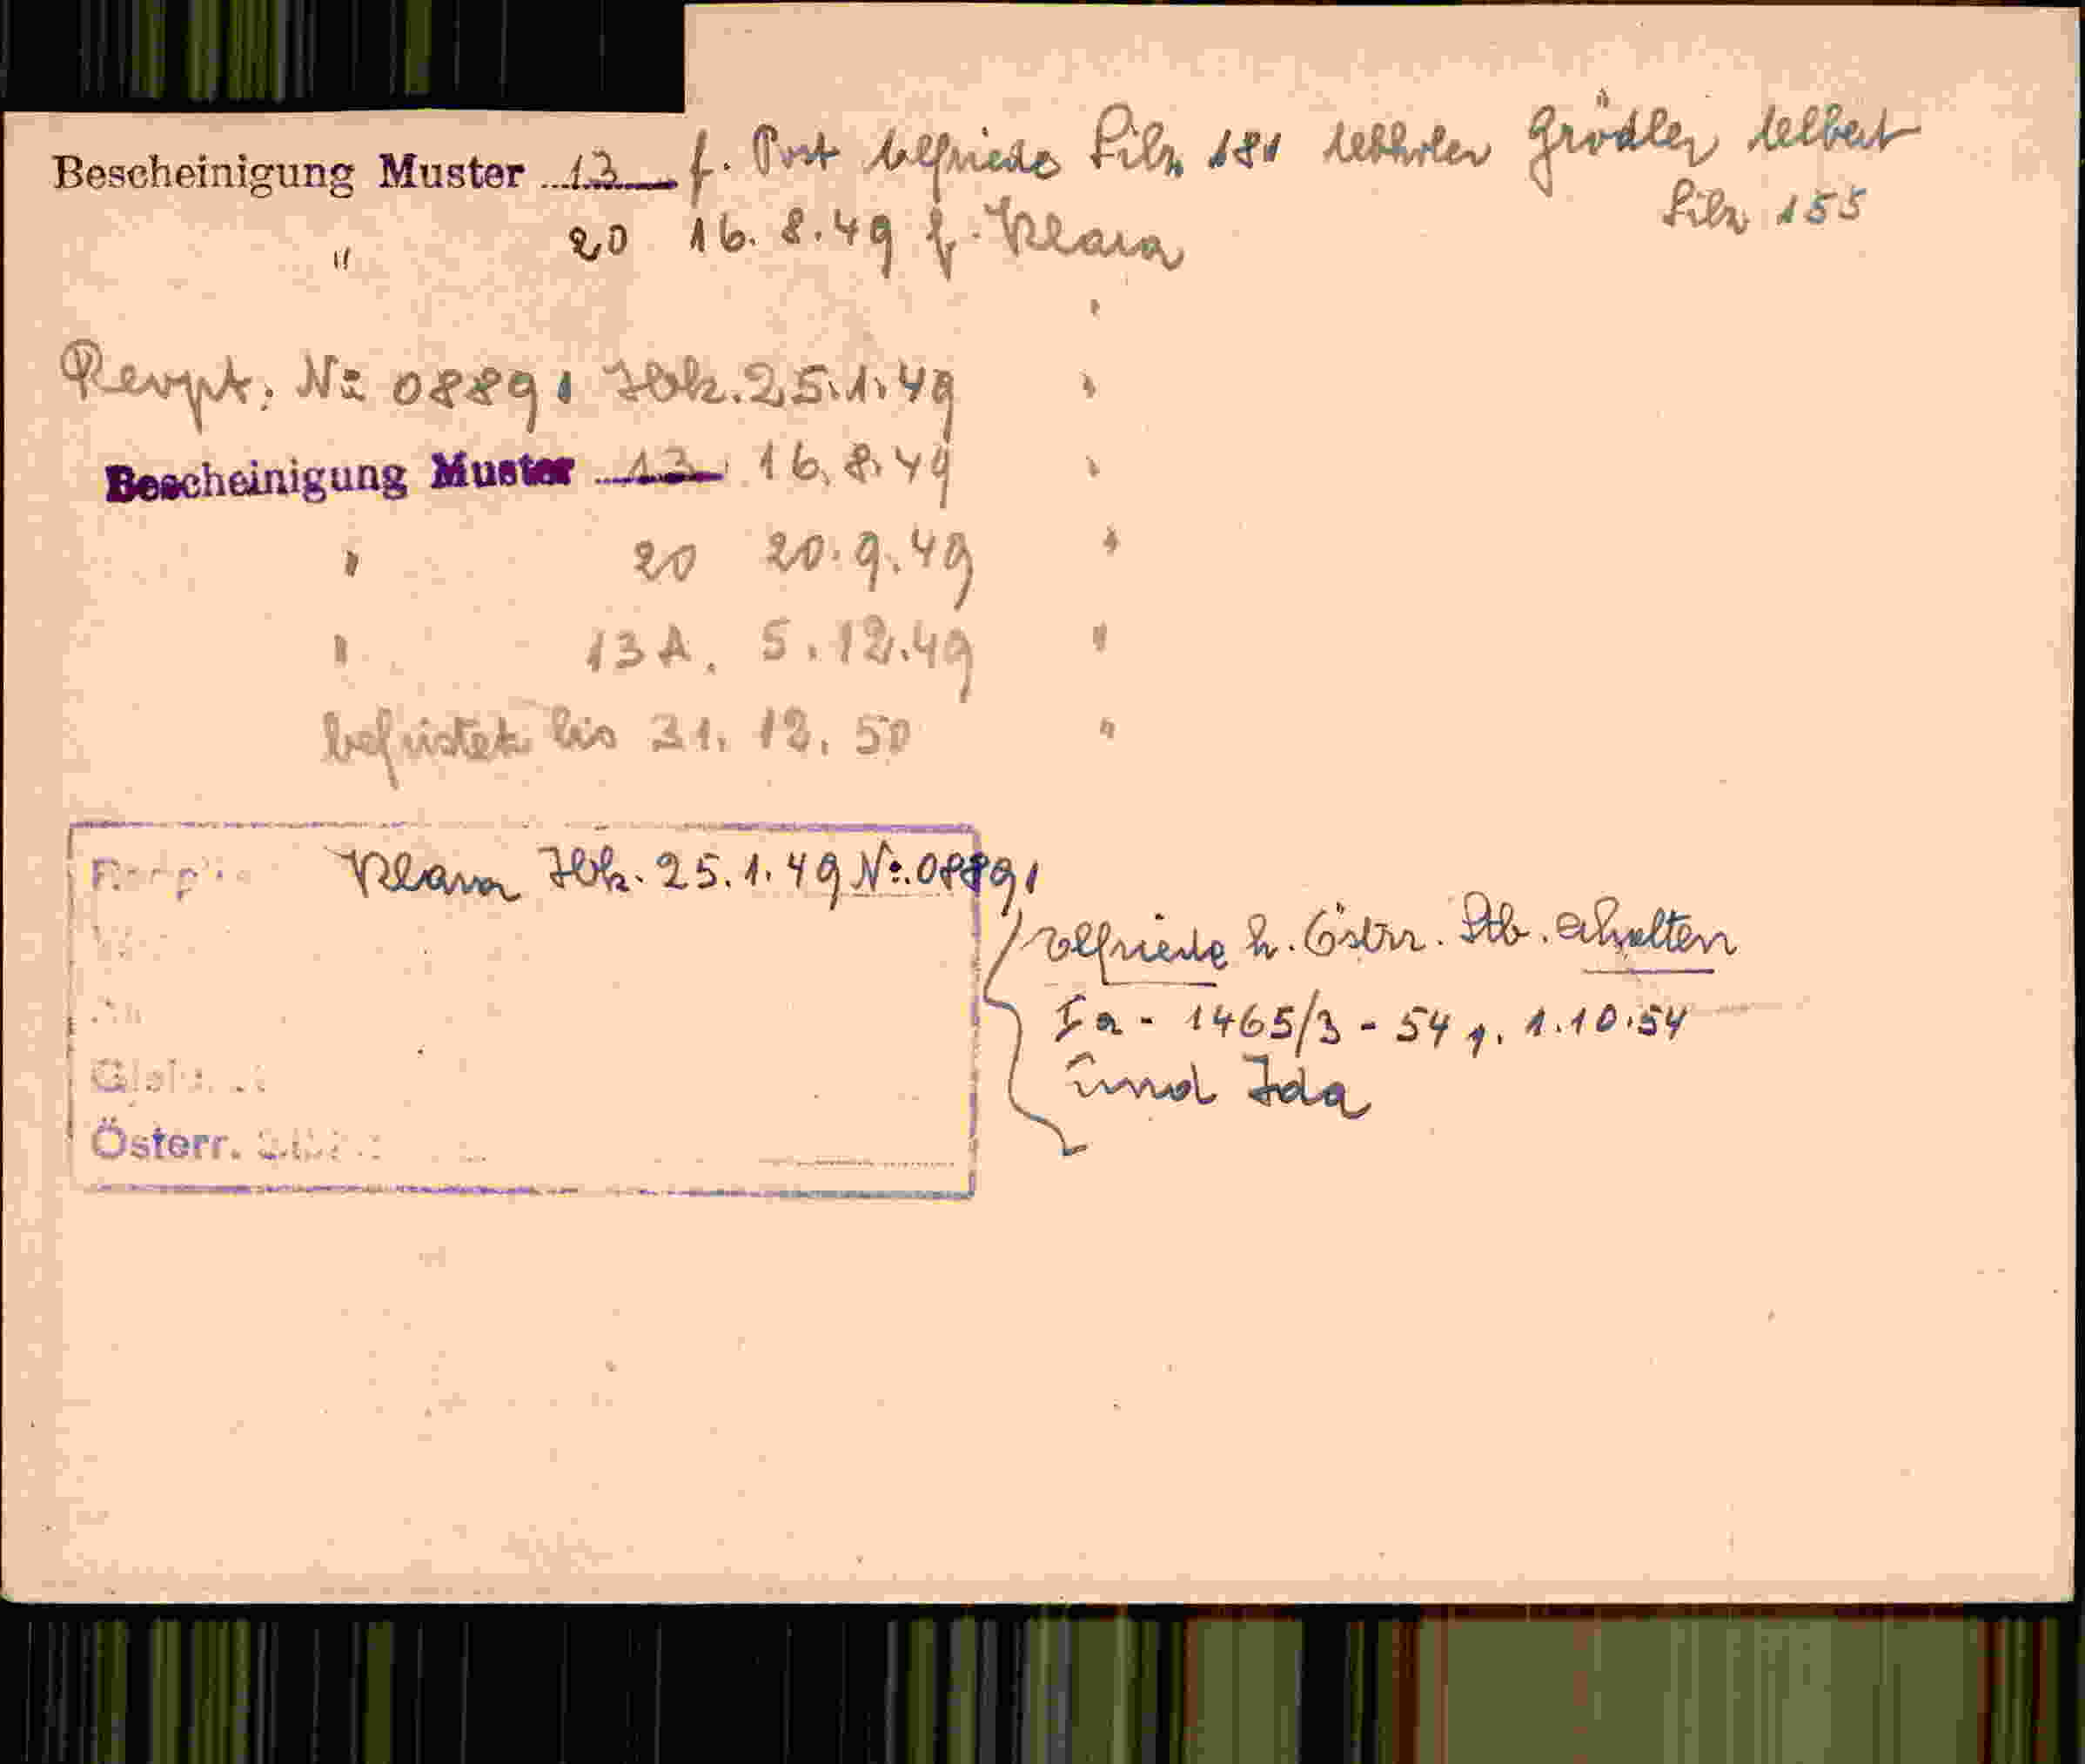 Bescheinigung Muster 13 f. Post Elfriede Silz 181 Grödler
Silz 155
" 20 16.8.49 f. Klara "
Rezept. № 08891 Ibk. 25.1.49 "
Bescheinigung Muster 13 16.8.49 "
" 20 20.9.49 "
" 13 A. 5.12.49 "
befristet bis 31.12.50 "
Klara Ibk. 25.1.49 №.08891
Elfriede h. Östrr. Stb. erhalten
Ia - 1465/3 - 54 1.10.54
und Ida
Österr.